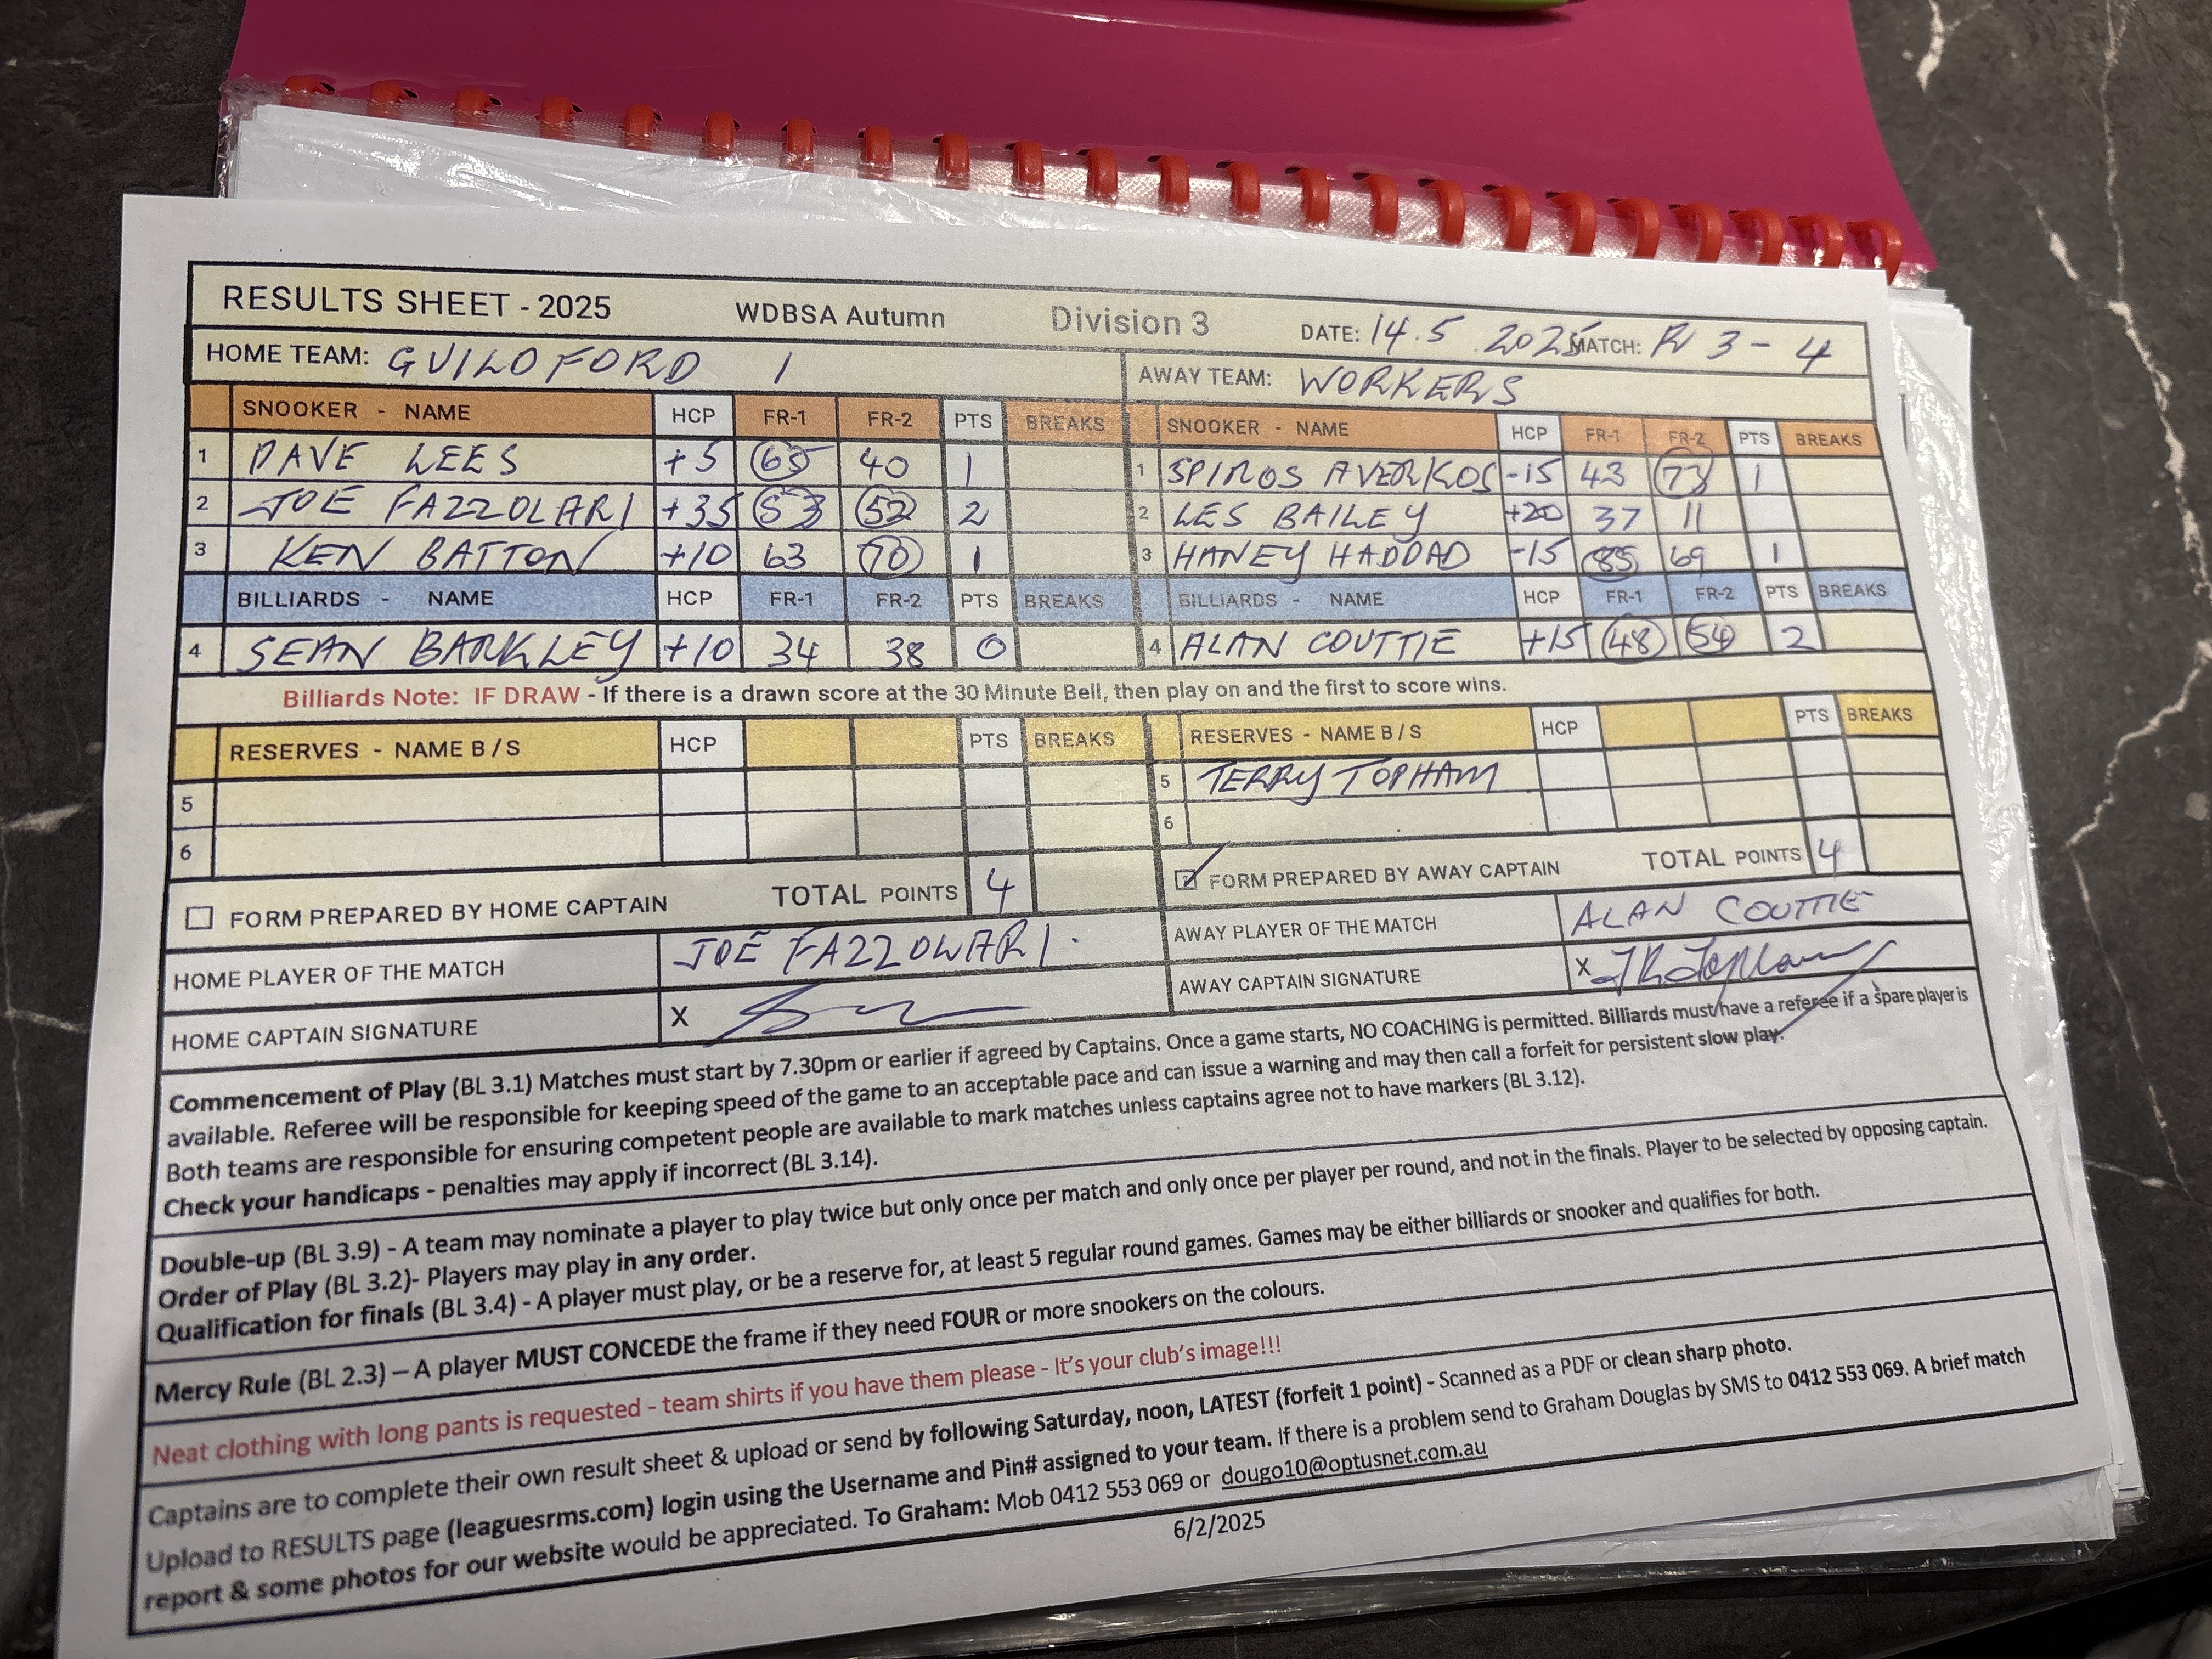 RESULTS SHEET - 2025 WDBSA Autumn Division 3 DATE: 14.5 .2025 MATCH: R 3 - 4
HOME TEAM: GUILDFORD 1 AWAY TEAM: WORKERS
SNOOKER - NAME HCP FR-1 FR-2 PTS BREAKS SNOOKER - NAME HCP FR-1 FR-2 PTS BREAKS
1 DAVE LEES +5 65 40 1 1 SPIROS AVERKOS -15 43 73 1
2 JOE FAZZOLARI +35 53 52 2 2 LES BAILEY +20 37 11
3 KEN BATTON +10 63 70 1 3 HANEY HADDAD -15 85 69 1
BILLIARDS - NAME HCP FR-1 FR-2 PTS BREAKS BILLIARDS - NAME HCP FR-1 FR-2 PTS BREAKS
4 SEAN BARKLEY +10 34 38 0 4 ALAN COUTTIE +15 48 54 2
Billiards Note: IF DRAW - If there is a drawn score at the 30 Minute Bell, then play on and the first to score wins.
RESERVES - NAME B / S HCP PTS BREAKS RESERVES - NAME B / S HCP PTS BREAKS
5 5 TERRY TOPHAM
6 6
FORM PREPARED BY HOME CAPTAIN TOTAL POINTS 4 FORM PREPARED BY AWAY CAPTAIN TOTAL POINTS 4
HOME PLAYER OF THE MATCH JOE FAZZOLARI. AWAY PLAYER OF THE MATCH ALAN COUTTIE
HOME CAPTAIN SIGNATURE X AWAY CAPTAIN SIGNATURE X
Commencement of Play (BL 3.1) Matches must start by 7.30pm or earlier if agreed by Captains. Once a game starts, NO COACHING is permitted. Billiards must have a referee if a spare player is
available. Referee will be responsible for keeping speed of the game to an acceptable pace and can issue a warning and may then call a forfeit for persistent slow play.
Both teams are responsible for ensuring competent people are available to mark matches unless captains agree not to have markers (BL 3.12).
Check your handicaps - penalties may apply if incorrect (BL 3.14).
Double-up (BL 3.9) - A team may nominate a player to play twice but only once per match and only once per player per round, and not in the finals. Player to be selected by opposing captain.
Order of Play (BL 3.2)- Players may play in any order.
Qualification for finals (BL 3.4) - A player must play, or be a reserve for, at least 5 regular round games. Games may be either billiards or snooker and qualifies for both.
Mercy Rule (BL 2.3) – A player MUST CONCEDE the frame if they need FOUR or more snookers on the colours.
Neat clothing with long pants is requested - team shirts if you have them please - It's your club's image!!!
Captains are to complete their own result sheet & upload or send by following Saturday, noon, LATEST (forfeit 1 point) - Scanned as a PDF or clean sharp photo.
Upload to RESULTS page (leaguesrms.com) login using the Username and Pin# assigned to your team. If there is a problem send to Graham Douglas by SMS to 0412 553 069. A brief match
report & some photos for our website would be appreciated. To Graham: Mob 0412 553 069 or dougo10@optusnet.com.au
6/2/2025